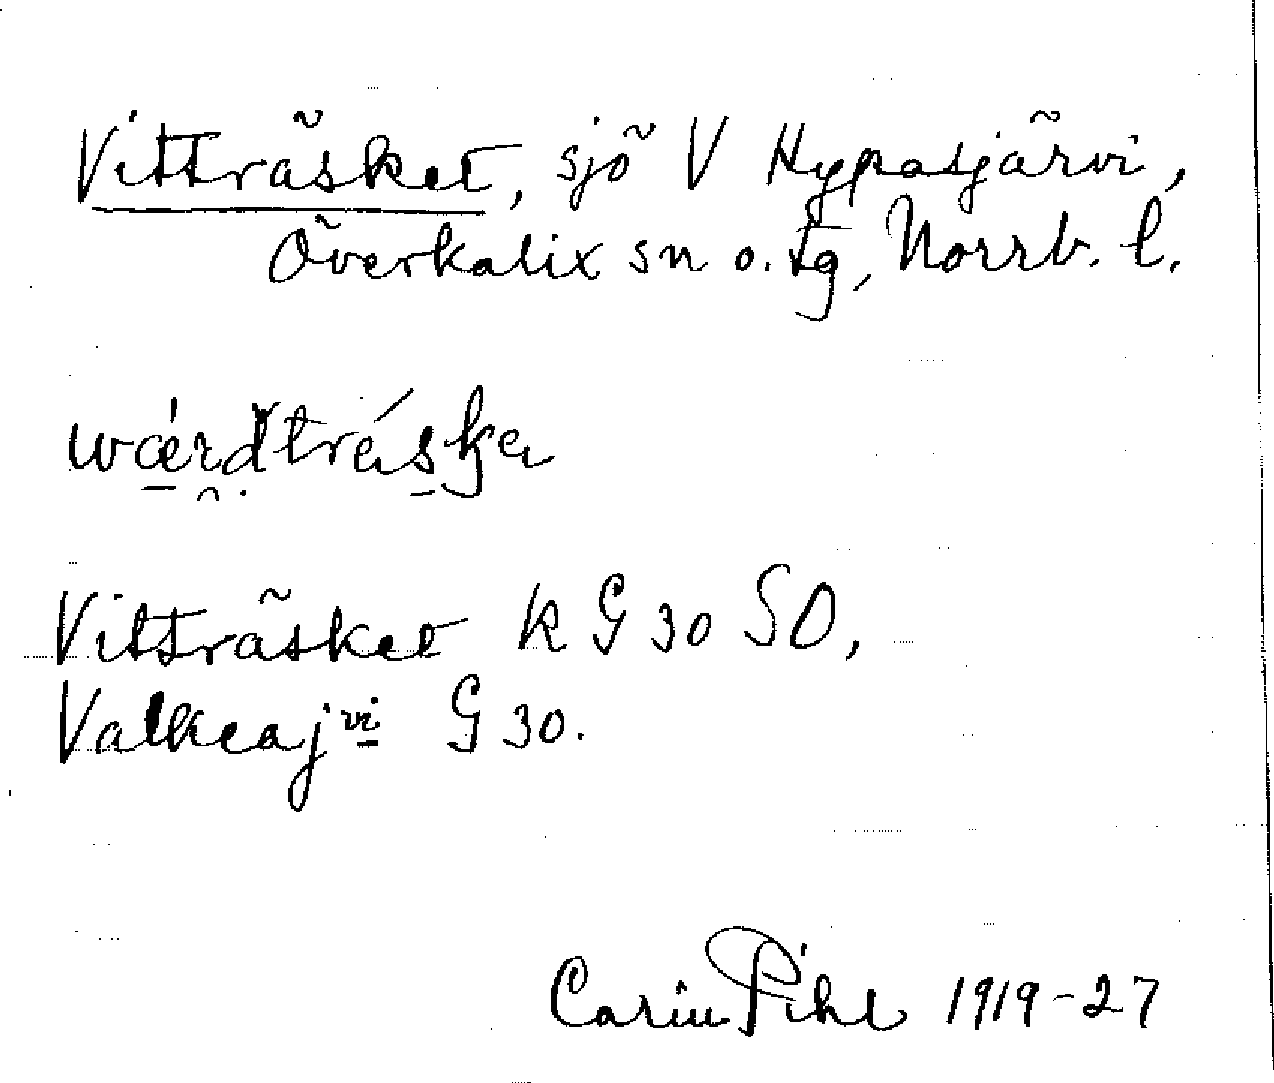 Vitträsket, sjö V Hypasjärvi,
Överkalix sn o. tg, Norrb. l.
Vitträsket k G 30 SO,
Valkeaj vi G 30.
Carin Pihl 1919-27